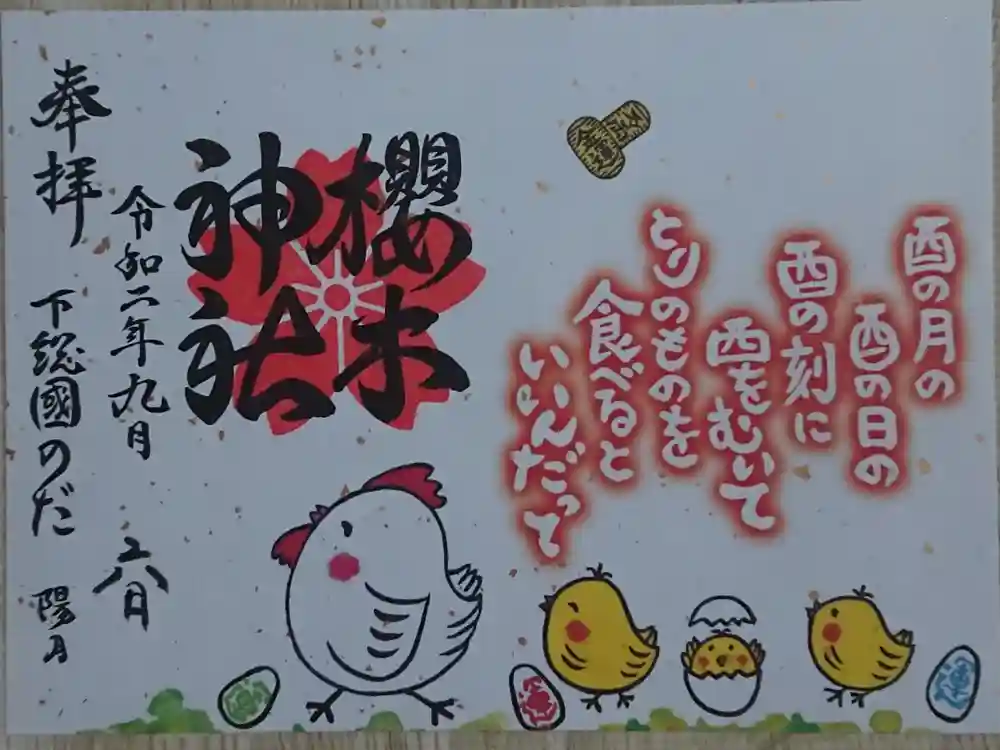 酉の月の
酉の日の
酉の刻に
西をむいて
とりのものを
食べると
いいんだって
櫻木
神社
令和二年九月
六日
奉拝
下総國のだ
陽月